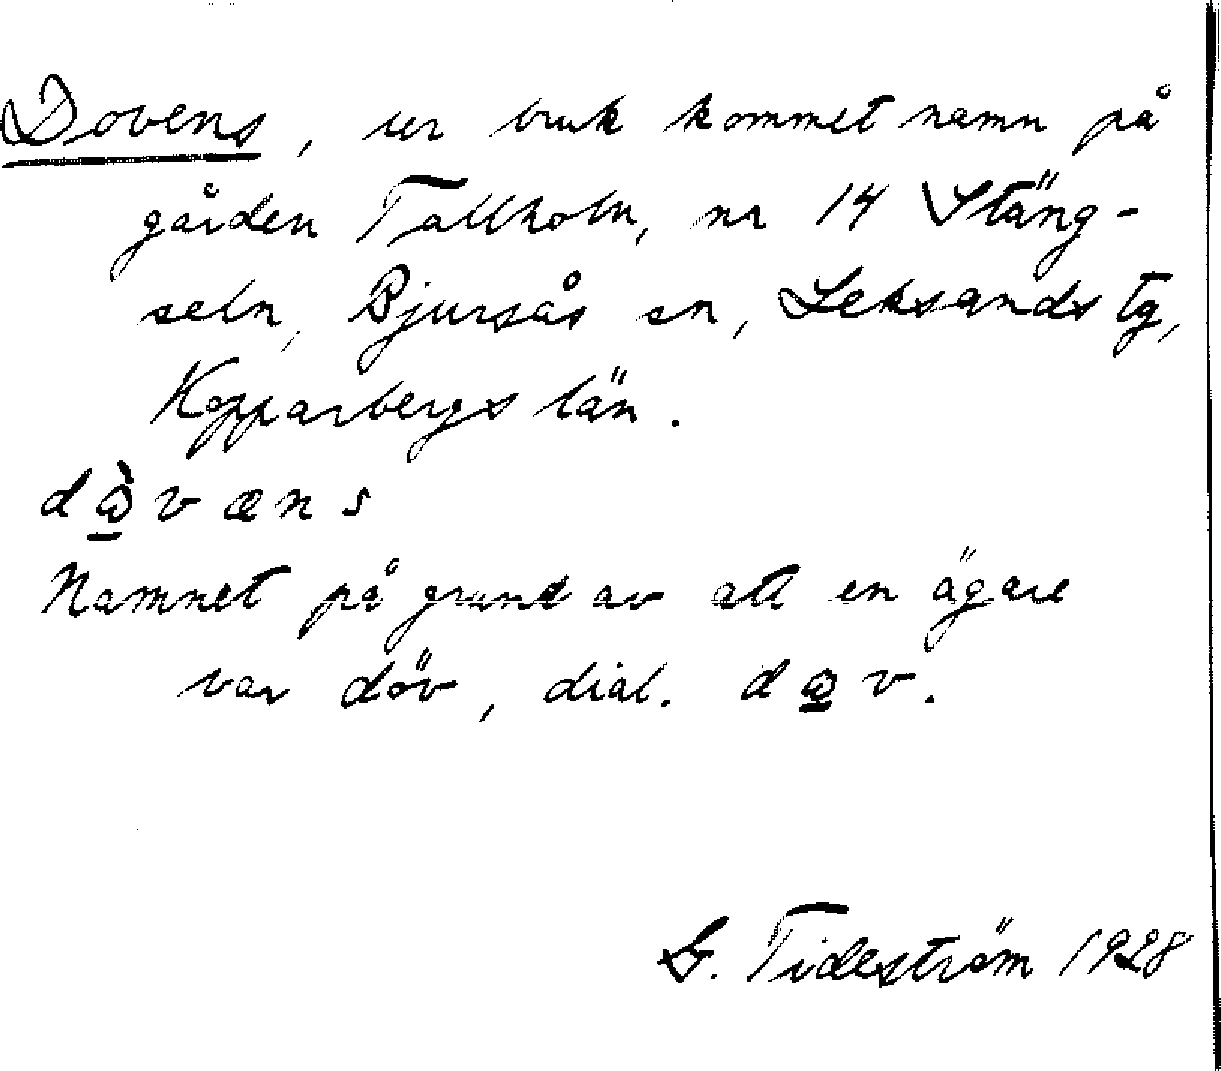 Dovens, ur bruk kommet namn på
gården Tallholn, nr 14 Stäng-
seln, Bjursås sn, Leksands tg,
Kopparbergs län.
dὼ̲væns
Namnet på grund av att en ägare
var döv, dial. dω̲v.
G. Tideström 1928